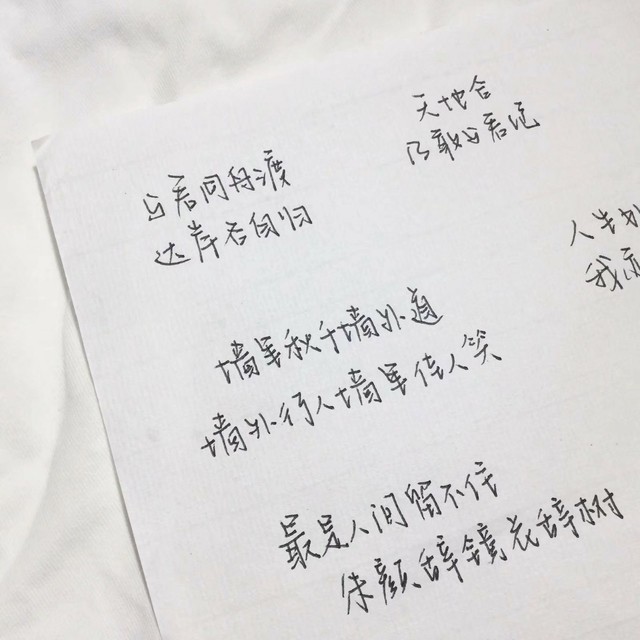 天地合
乃敢与君绝
与君同舟渡
达岸各自归
人生
我亦
墙里秋千墙外道
墙外行人墙里佳人笑
最是人间留不住
朱颜辞镜花辞树